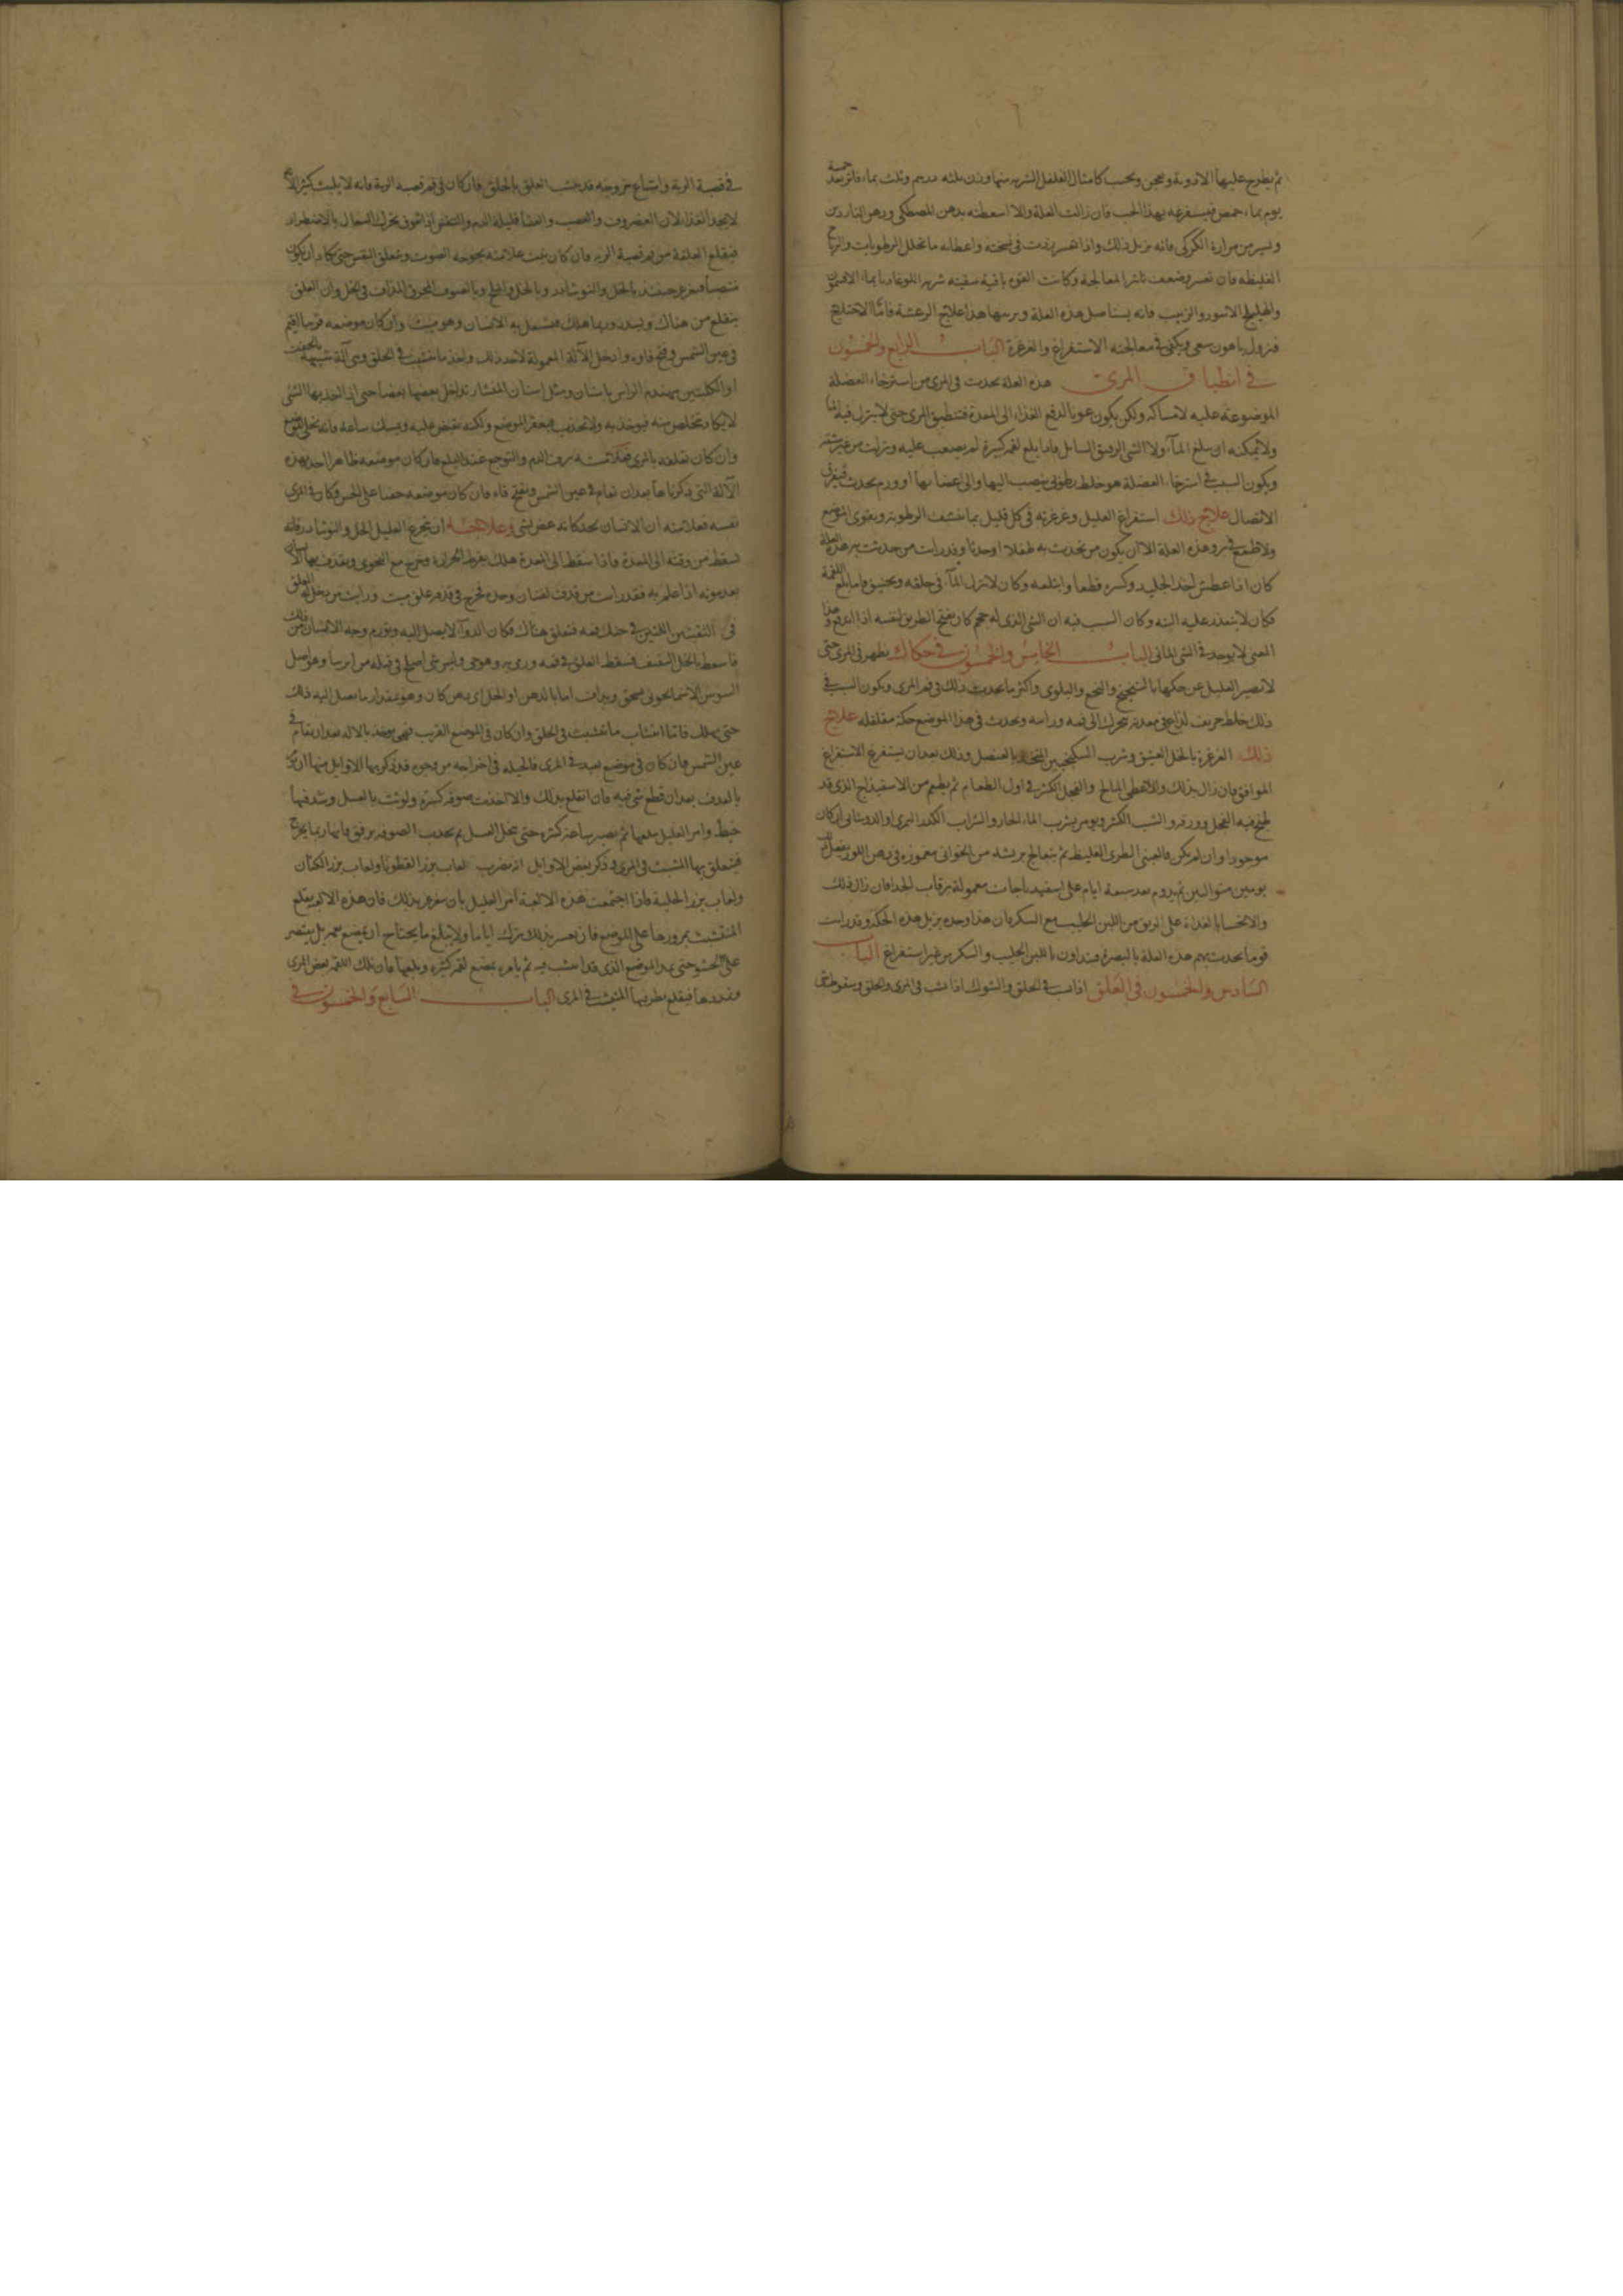 ثم يطرح عليها الادوية ويعجن ويحبب كامثال الفلفل الشربه منها وزن ثلثه درهم وثلث بماء فاتر بعد خمسة
يوم بماء حمص فيستفرغه بهذا الحب فان زالت العلة والا اسعطته بدهن المصطكى ودهن الناردين
ويسير من مرارة الكركى فانه يزيل ذلك واذا تعسر زدت فى تسخينه واعطائه ما يحلل الرطوبات والرياح
الغليظه فان تعسر وضعف تاثير المعالجة وكانت القوه باقية سقيته شربه اللوغاديا بماء الافتيمون
والهليلج الاسود والزبيب فانه يستاصل هذه العلة ويريبها هذا علاج الرعشة فامّا الاختلاج
فيزول باهون سعى ويكفى فى معالجته الاستفراغ والغرغرة الباب الرابع والخمسون
فى انطباق المرئ هذه العلة يحدث فى المرى من استرخاء العضلة
الموضوعة عليه لامساكه ولكن يكون عونا لدفع الغذاء الى المعدة فتنطبق المرى حتى لا ينزل فيه الماء
ولا يمكنه ان يبلع الماء ولا الشى الرقيق السايل فاذا بلع لقمه كبيرة لم يصعب عليه ونزلت من غير مشقه
ويكون السبب فى استرخاء العضلة هو خلط رطوبى ينصب اليها والى اعضابها او ورم يحدث فيفرق
الاتصال علاج ذلك استفراغ العليل وغرغرته فى كل قليل بما ينشف الرطوبة ويقوى الموضع
ولا طمع فى برو هذه العلة الا ان يكون من تحدث به طفلا او حدثا وقد رايت من حدثت به هذه العلة
كان اذا عطش اخذ الجليد وكسره قطعا وابتلعه وكان لا ينزل الماء فى حلقه ويختنق فاما بلع اللقمة
فكان لا يتعذر عليه البته وكان السبب فيه ان الشى الذى له حجم كان يفتح الطريق لنفسه اذا اندفع وهذا
المعنى لا يوجد فى الشى المائى الباب الخامس والخمسون فى حكاك يظهر فى المرى حتى
لا يصبر العليل عن حكها بالتنخنخ والتنحنح والبلوى واكثر ما يحدث ذلك فى فم المرى ويكون السبب فى
ذلك خلط حريف لذاع فى معدته يتحرك الى فمه وراسه ويحدث فى هذا الموضع حكة مقلقله علاج
ذلك الغرغرة بالخل العتيق وشرب السكنجبين المتخذ بالعنصل وذلك بعد ان يستفرغ الاستفراغ
الموافق فان زال بذلك والا اعطى المالح والفجل الكثير فى اول الطعام ثم يطعم من الاسفيذباج الذى قد
طبخ فيه الفجل وورقه والشبت الكثير ويومر بشرب الماء الحار والشراب الكدر التمرى او الدوشابى ان كان
موجودا وان لم يكن فالعنبى الطرى الغليظ ثم يتعالج بريشه من الخوافى مغموزه فى دهن اللوز يفعل ذلك
يومين متواليين ثم يدوم بعد سبعة ايام على اسفيدباجات معمولة برقاب الجدا فان زال ذلك
والا تحسا بالغداة على الريق من اللبن الحليب مع السكر فان هذا وحده يزيل هذه الحكة وقد رايت
قوما يحدث بهم هذه العلة بالبصرة فيتداوون باللبن الحليب والسكر من غير استفراغ الباب
السادس والخمسون فى العلق اذا نشب فى الحلق والشوك اذا نشب فى المرى والحلق وسقوط شى
فى قصبة الرية وامتناع خروجه قد ينشب العلق بالحلق فان كان فى فم قصبه الرية فانه لا يلبث كثيرا لانه
لا يجد الغذا لان الغضروف والعصب والغشا قليلة الدم والتنفس اذا قوى يحرك السعال بالاضطرار
فيقلع العلقة من فم قصبة الرية فان كان نشبت علامته بحوحه الصوت وضيق النفس حتى كاد ان يكون
منتصبا فيغرغر حينئذ بالخل والنوشادر وبالخل والملح وبالصوف المحرق المذاف فى الخل وان العلق
ينقلع من هناك وليسدد وربما هلك فيسعل به الانسان وهو ميت وان كان موضعه قريبا اقيم
فى عين الشمس وفتح فاه وادخل الآلة المعمولة لاخذ ذلك واخذ ما نشب فى الحلق وهى آلة شبيهة بالجفت
او الكلبتين مهندم الراس باسنان ومثل اسنان المنشار تداخل بعضها بعضا حتى اذا اخذ بها الشى
لا يكاد يتخلص منه فيوخذ به ولا تجذب فيعقر الموضع ولكنه تقبض عليه ويمسك ساعة فانه يخلى الموضع
وان كان تعلقه بالمرى فعلامته نزف الدم والتوجع عند البلع فان كان موضعه ظاهرا اخذ بهذه
الآلة التى ذكرناها بعد ان تقام فى عين الشمس ويفتح فاه فان كان موضعه خفيا على الحس وكان فى المرى
نفسه فعلامته ان الانسان يجد كانه عض شى وعلاجه ان يتجرع العليل الخل والنوشادر فانه
تسقط من وقته الى المعدة فاذا سقط الى المعدة هلك بفرط الحرارة وخرج مع النجوى ويقذف بها الانسان
بعد موته اذا علم به فقد رايت من قذف لغثيان وحده فخرج فى قذفه علق ميت ورايت من يدخل العلق
فى الثقبتين اللتين فى حنك فمه فتعلق هناك فكان الدواء لا يصل اليه ويورم وجه الانسان من ذلك
فاسعط بالخل الثقيف فسقط العلق فى فمه ورمى به وهو حى وليس شى اصلح فى قتله من ايرسا وهو اصل
السوس الاسمانجونى يسحق ويداف اما بالدهن او الخل اى دهن كان وهو بمقدار ما يصل اليه ذلك
حتى يهلك فاما انتشاب ما ينشب فى الحلق وان كان فى الموضع القريب فهى يوخذ بالاله بعد ان يقام فى
عين الشمس فان كان فى موضع بعيد فى المرى فالحيله فى اخراجه من وجوه قد ذكر بها الاوايل منها ان يومر
بالقذف بعد ان قطع شى فيه فان انقلع بذلك والا اخذت صوفه كبيرة ولوثت بالعسل وشد فيها
خيط وامر العليل ببلعها ثم يصبر ساعة كثيرة حتى ينحل العسل ثم يجذب الصوفه برفق فانها ربما يخرج
فيتعلق بها المتشبث فى المرى وذكر بعض الاوايل انه يضرب لعاب بزر القطونا ولعاب بزر الكتان
ولعاب بزر الحلبة فاذا اجتمعت هذه الالعبة امر العليل بان يتغرغر بذلك فان هذه الالعبه يقلع
المتشبث بمرورها على الموضع فان تعسر بذلك ترك اياما ولا يبلع ما يحتاج ان يمضغ معه بل يقتصر
على الحشو حتى يدا الموضع الذى قد انتشب فيه ثم يامره بمضغ لقم كثيرة ويبلعها فان تلك اللقم تغص المرى
وتمددها فيقلع بطريقها المنتشب فى المرى الباب السابع والخمسون فى